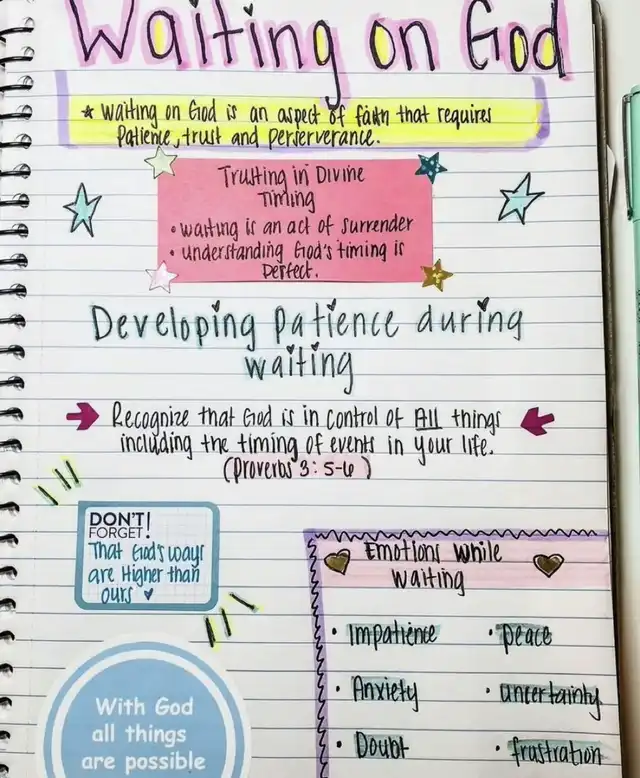 Waiting on God
* Waiting on God is an aspect of faith that requires
Patience, trust and perserverance.
Trusting in Divine
Timing
• waiting is an act of surrender
• understanding God's timing is
perfect.
Developing patience during
waiting
Recognize that God is in control of All things
including the timing of events in your life.
(Proverbs 3: 5-6)
DON'T
FORGET!
That God's ways
are Higher than
ours
Emotions While
Waiting
• Impatience
• peace
• Anxiety
• uncertainty
• Doubt
• frustration
With God
all things
are possible